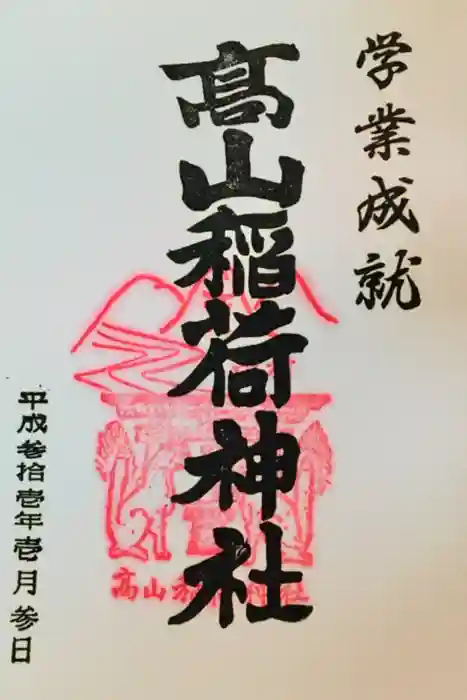 学業成就
髙山稲荷神社
平成参拾壱年壱月参日
高山稲荷神社